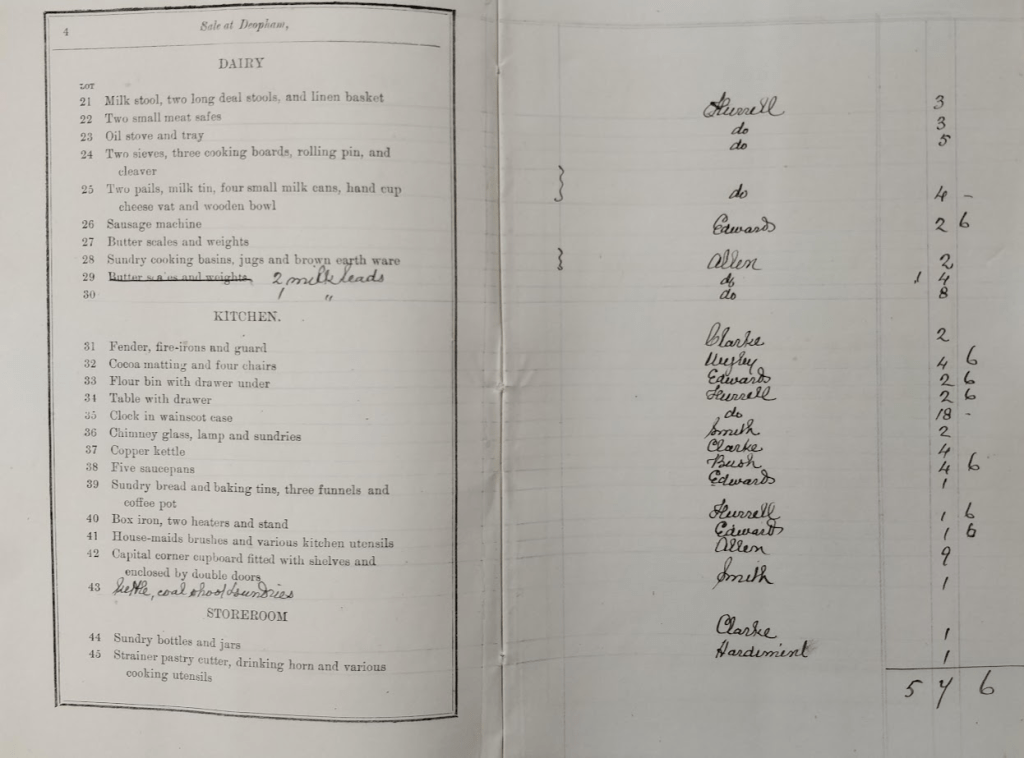 4
Sale at Deopham,
DAIRY
LOT
21 Milk stool, two long deal stools, and linen basket
22 Two small meat safes
23 Oil stove and tray
24 Two sieves, three cooking boards, rolling pin, and
cleaver
25 Two pails, milk tin, four small milk cans, hand cup
cheese vat and wooden bowl
26 Sausage machine
27 Butter scales and weights
28 Sundry cooking basins, jugs and brown earth ware
29 Butter scales and weights, 2 milk leads
30 1 "
KITCHEN.
31 Fender, fire-irons and guard
32 Cocoa matting and four chairs
33 Flour bin with drawer under
34 Table with drawer
35 Clock in wainscot case
36 Chimney glass, lamp and sundries
37 Copper kettle
38 Five saucepans
39 Sundry bread and baking tins, three funnels and
coffee pot
40 Box iron, two heaters and stand
41 House-maids brushes and various kitchen utensils
42 Capital corner cupboard fitted with shelves and
enclosed by double doors
43 coal shoot sundries
STOREROOM
44 Sundry bottles and jars
45 Strainer pastry cutter, drinking horn and various
cooking utensils
Hurrell 3
do 3
do 5
do 4 -
Edwards 2 6
Allen 2
do 1 4
do 8
Clarke 2
4 6
Edwards 2 6
Hurrell 2 6
do 18 -
Smith 2
Clarke 4
Bush 4 6
Edwards 1
Hurrell 1 6
Edwards 1 6
Allen 9
Smith 1
Clarke 1
Hardiment 1
5 7 6